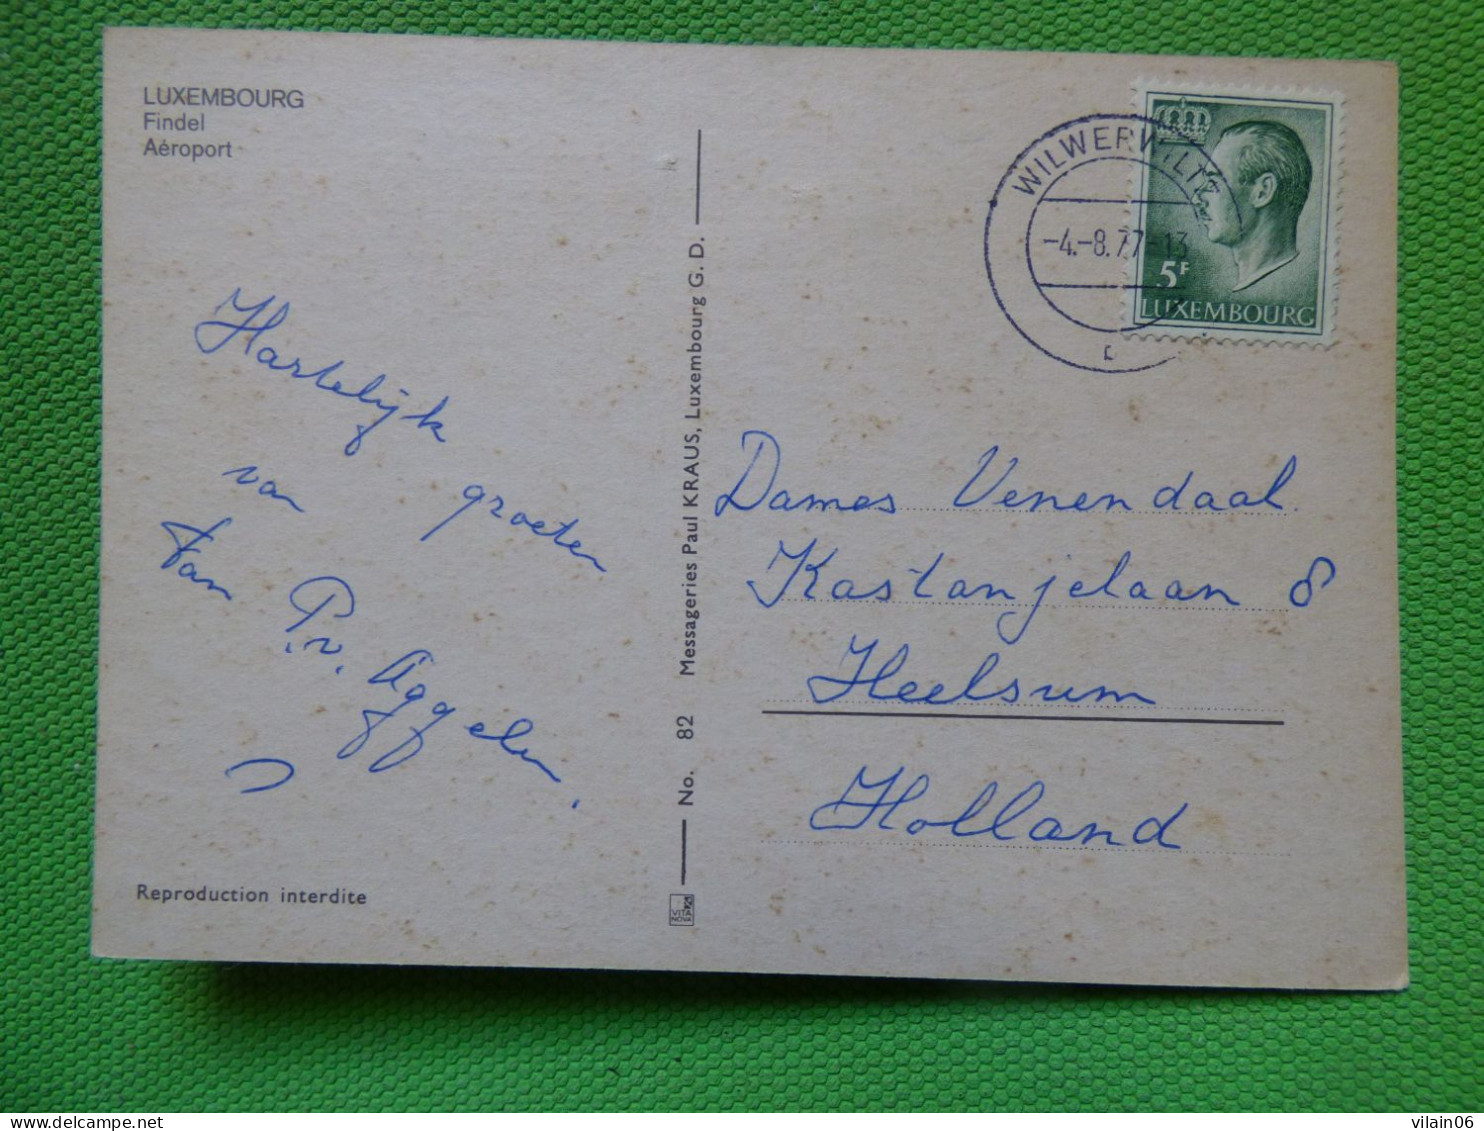 LUXEMBOURG
Findel
Aéroport
Hartelijk groeten
van
Fam P.v. Aggelen.
Reproduction interdite
No. 82 Messageries Paul KRAUS, Luxembourg G. D.
VITA
NOVA
WILWERWILTZ
-4.-8.77-13
5F
LUXEMBOURG
Dames Venendaal.
Kastanjelaan 8
Heelsum
Holland
delcampe.net
vilain06